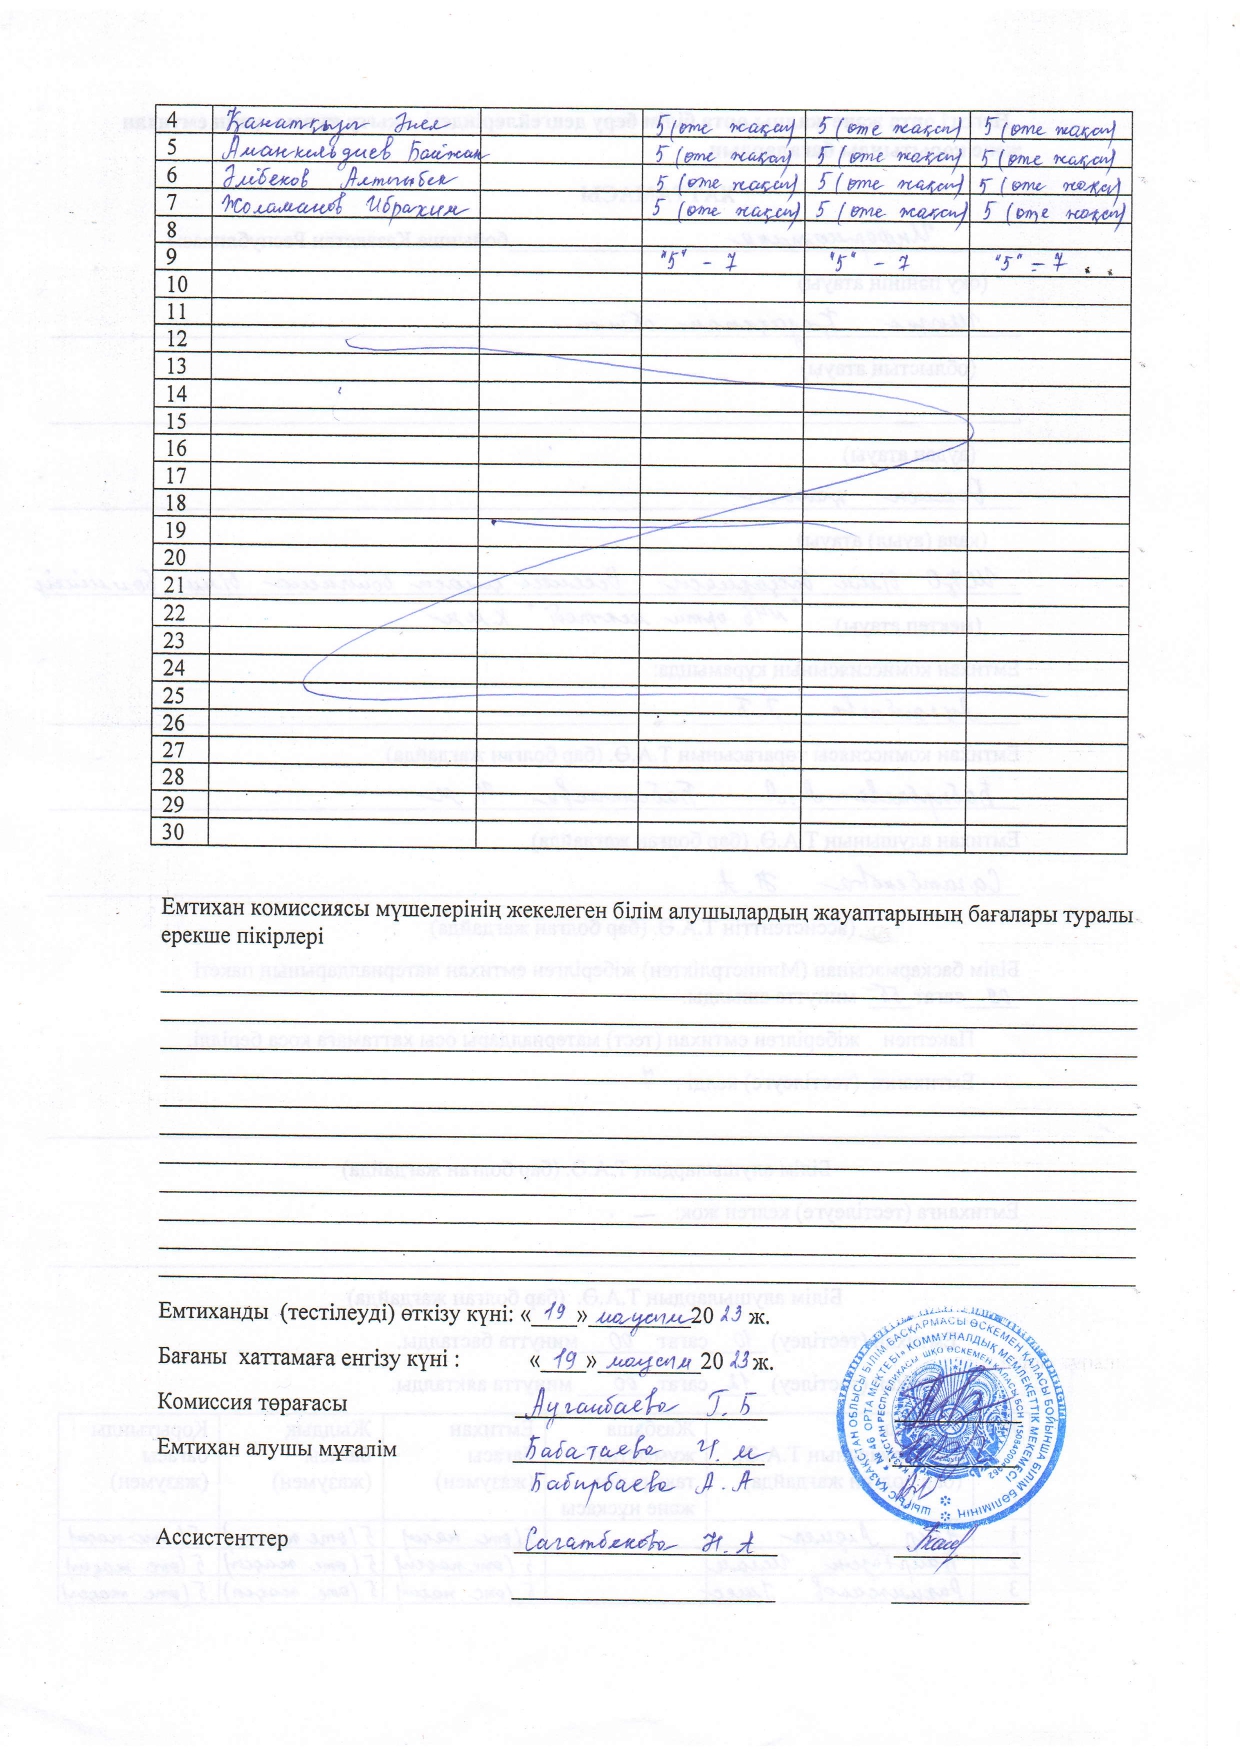 4 Қанатқызы Әнел 5 (өте жақсы) 5 (өте жақсы) 5 (өте жақсы)
5 Аманкельдиев Байжан 5 (өте жақсы) 5 (өте жақсы) 5 (өте жақсы)
6 Әлібеков Алтынбек 5 (өте жақсы) 5 (өте жақсы) 5 (өте жақсы)
7 Жоламанов Ибрахим 5 (өте жақсы) 5 (өте жақсы) 5 (өте жақсы)
8
9 "5" - 7 "5" - 7 "5" - 7
10
11
12
13
14
15
16
17
18
19
20
21
22
23
24
25
26
27
28
29
30
Емтихан комиссиясы мүшелерінің жекелеген білім алушылардың жауаптарының бағалары туралы
ерекше пікірлері
Емтиханды (тестілеуді) өткізу күні: « 19 » маусым 20 23 ж.
Бағаны хаттамаға енгізу күні : « 19 » маусым 20 23 ж.
Комиссия төрағасы Ауганбаева Г. Б
Емтихан алушы мұғалім Бабатаева Ч. М
Бабирбаева А. А
Ассистенттер Сагатбекова Н. А